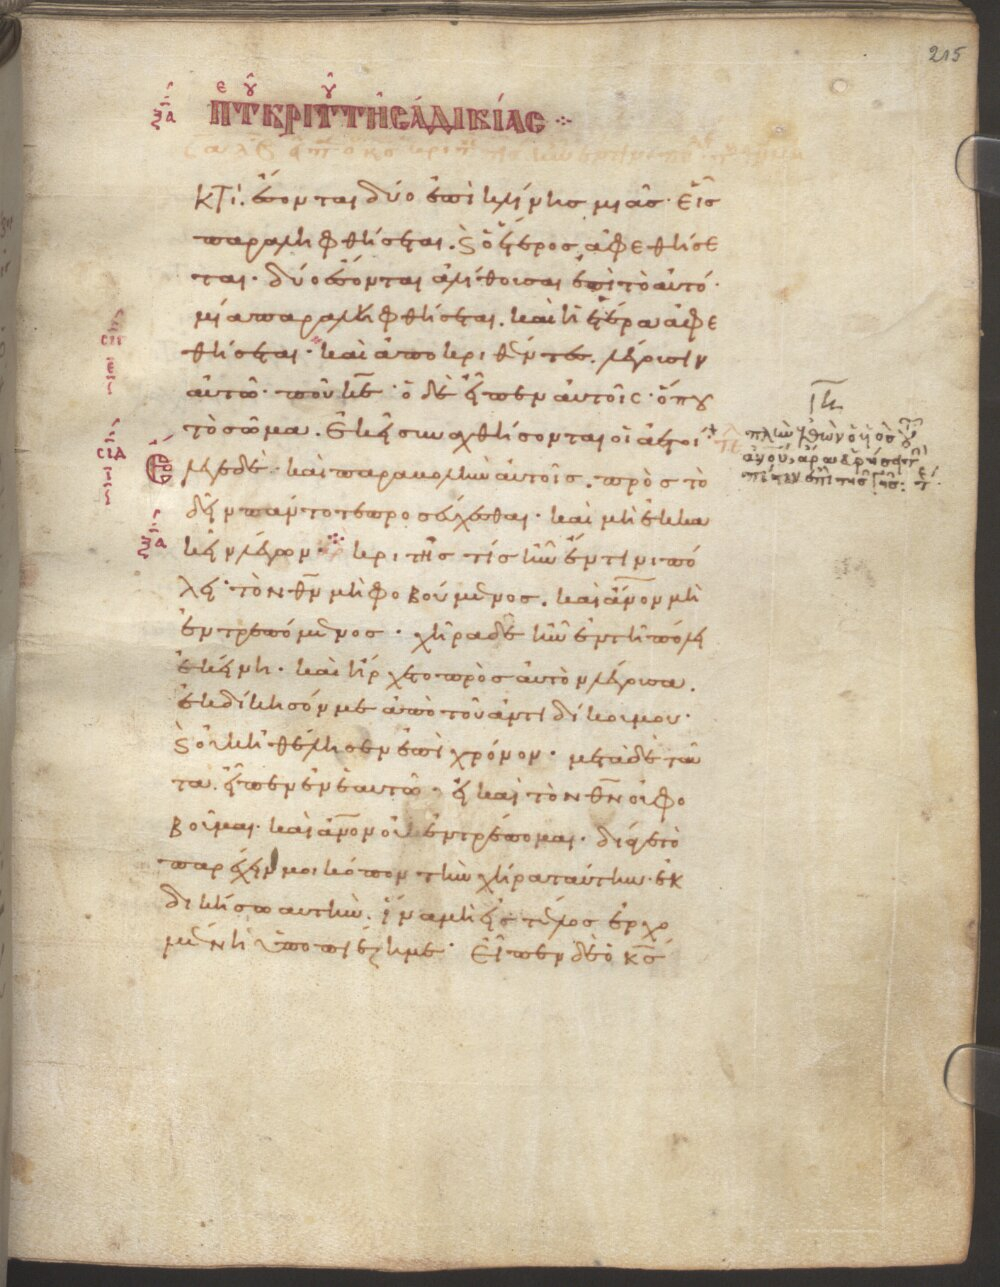 215
ξα πτ κριτ τῆς ἀδικίας
κτὶ. ἔσονται δύο ἐπὶ κλίνης μιᾶς· εἷς
παραληφθήσεται. ϗ ὁ ἕτερος ἀφεθήσε
ται· δύο ἔσονται ἀλήθουσαι ἐπὶ τὸ αὐτό·
μία παραληφθήσεται. καὶ ἡ ἑτέρα ἀφε
θήσεται· καὶ ἀποκριθέντες, λέγουσιν
αὐτῶ· ποῦ κε· ὁ δὲ εἶπεν αὐτοῖς· ὅπου
τὸ σῶμα. ἐκεῖ συναχθήσονται οἱ ἀετοί·
Ἔλεγε δὲ καὶ παραβολὴν αὐτοῖς. πρὸς τὸ
δεῖν πάντοτε προσεύχεσθαι· καὶ μὴ ἐκκα
κεῖν λέγων· κριτής τίς ἦν ἔν τινι πό
λει· τὸν θν μὴ φοβούμενος. καὶ ἄνον μὴ
ἐντρεπόμενος· χήρα δὲ ἦν ἐν τῆ πόλει
ἐκείνη· καὶ ἤρχετο πρὸς αὐτὸν λέγουσα.
ἐκδίκησόν με ἀπὸ τοῦ ἀντιδίκου μου·
ϗ οὐκ ἠθέλησεν ἐπὶ χρόνον· μετὰ δὲ ταῦ
τα. εἶπεν ἐν ἑαυτῶ· εἰ καὶ τὸν θν οὐ φο
βοῦμαι· καὶ ἄνον οὐκ ἐντρέπομαι· διά γε τὸ
παρέχειν μοι κόπον τὴν χήραν ταύτην. ἐκ
δικήσω αυτήν. ἵνα μὴ εἰς τέλος ἐρχο
μένη ὑποπιέζη με· Εἶπεν δὲ ὁ κς